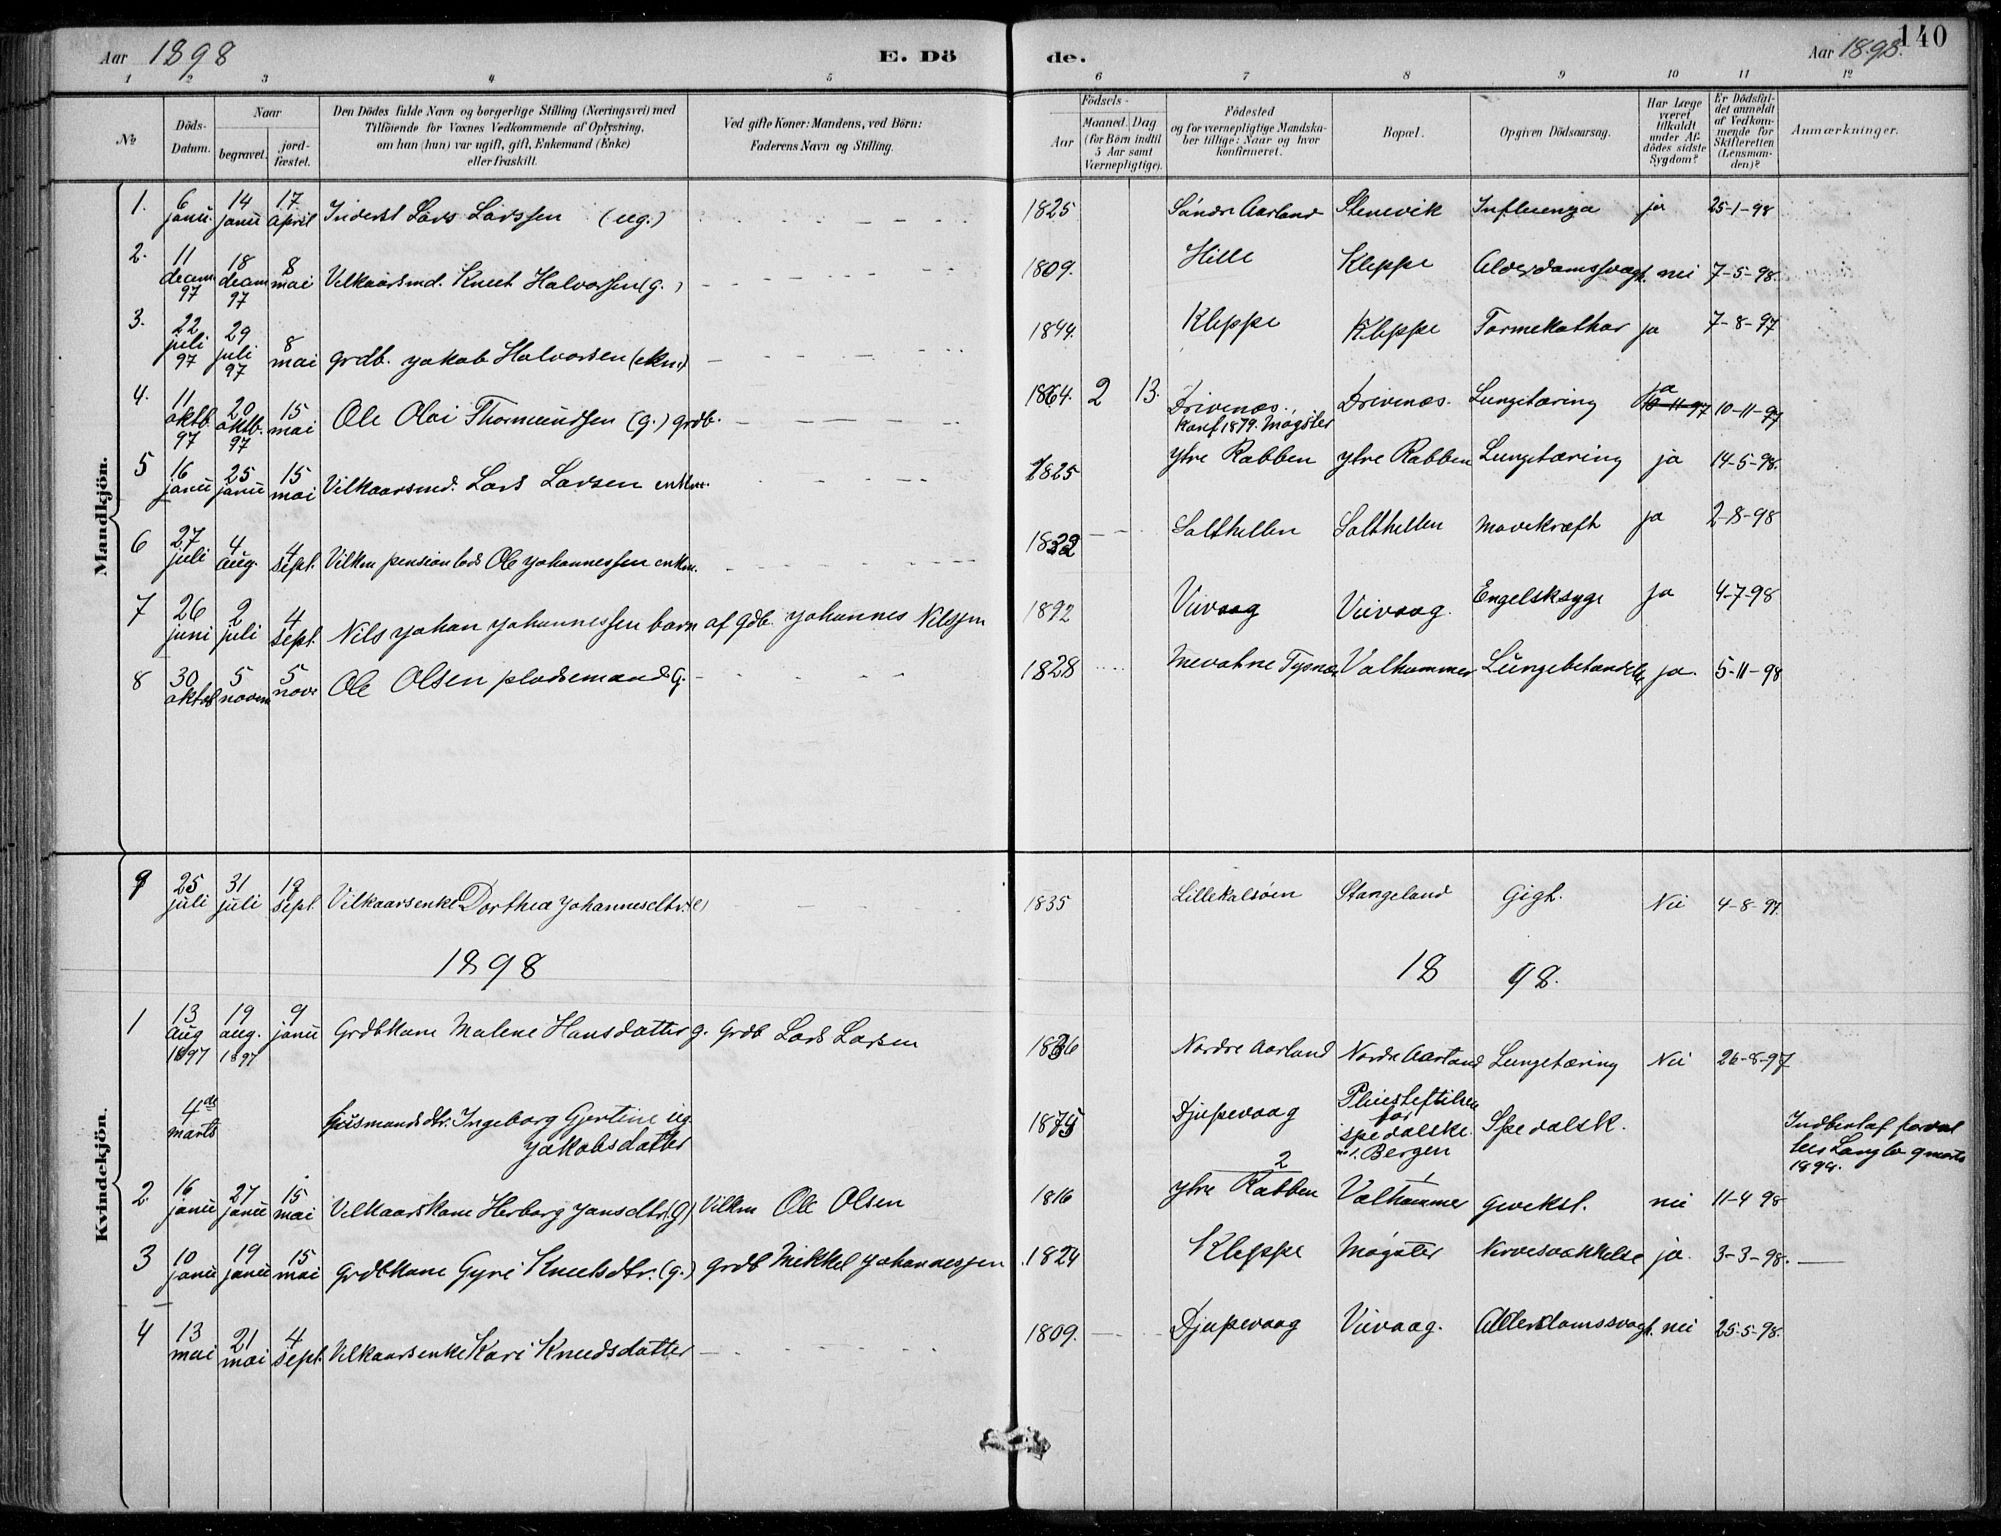 Aar 1898 E. Dö de. Aar 1898. 140
1 2 3 4 5 6 7 8 9 10 11 12
№ Döds-Datum. Naar begravet. jord-fæstet.
Den Dödes fulde Navn og borgerlige Stilling (Næringsvei) med
Tilföiende for Voxnes Vedkommende af Oplysning,
om han (hun) var ugift, gift, Enkemand (Enke)
eller fraskilt.
Ved gifte Koner: Mandens, ved Börn:
Faderens Navn og Stilling.
Födsels-
Aar Maaned. Dag
(for Börn indtil
5 Aar samt
Værnepligtige).
Födested
og for værnepligtige Mandska-
ber tillige: Naar og hvor
konfirmeret.
Bopæl.
Opgiven Dödsaarsag.
Har Læge
været
tilkaldt
under Af-
dödes sidste
Sygdom?
Er Dödsfal-
det anmeldt
af Vedkom-
mende for
Skifteretten
(Lensman-
den)?
Anmærkninger.
Mandkjön.
1. 6 janu. 14 janu 17 April Inderst Lars Larssen (ug.) 1825 Söndre Aarland Stenevik Influenza ja 25-1-98
2. 11 decem 97 18 decem 97 8 mai Vilkaarsmd. Knut Halvorssen (g.) 1809. Hille Kleppe Alderdomssvagh. nei 7-5-98.
3. 22 juli 97 29 juli 97 8 mai grdb. Jakob Halvorsen (ekm) 1844. Kleppe Kleppe Tarmekathar ja 7-8-97
4. 11 oktb. 97 20 oktb. 97 15 mai Ole Olai Thormundsen (g.) grdb. 1864. 2 13. Drivenæs. Konf 1879. Møgster Drivenæs. Lungetæring ja 10-11-97 10-11-97
5 16 janu 25 janu 15 mai Vilkaarsmd. Lars Larsen enkm. 1825 ytre Rabben ytre Rabben Lungetæring ja 14-5-98.
6 27 juli 4 aug. 4 sept. Vilkm pension lods Ole Johannessen enkm. Salthellen Salthellen Mavekræft ja 2-8-98
7 26 juni 2 juli 4 sept. Nils Johan Johannessen barn af gdb. Johannes Nilssen 1892 Viivaag Viivaag. Engelsksyge ja 4-7-98
8 30 oktob 5 novem 5 nov Ole Olsen pladsemand G. 1828 Mevatne Tysnæs Valhammer Lungebetændelse ja. 5-11-98
Kvindekjön.
9 25 juli 31 juli 19 sept. Vilkaarsenke Dorthea Johannesdtr. (e) 1835 Lillekalsöen Stangeland Gigt. Nei 4-8-97.
1898 18 98.
1 13 aug 1897 19 aug. 1897 9 janu Grdbkone Malene Hansdatter g. Grdb Lars Larsen 1836 Nordre Aarland Nordre Aarland Lungetæring Nei 26-8-97
4de marts husmandsdtr. Ingeborg Gjertine ug.
Jakobsdatter 1875 Djupevaag Pleiestiftelsen
for
spedalske
i Bergen Spedalsk. Indberetaf
1898.
2. 16 janu 27 janu 15 mai Vilkaarskone Herborg Jansdtr. (G) Vilkm Ole Olsen 1816 ytre Rabben Valhammer nei 11-4 98
3 10 janu 19 janu 15 mai Grdbkone Gyri Knutsdtr. (g.) grdb Mikkel Johannessen 1824 Kleppe Møgster Nervesvækkelse ja. 3-3-98.
4 13 mai 21 mai 4 sept. Vilkaarsenke Kari Knudsdatter 1809. Djupevaag Viivaag. Alderdomssvagh. nei 25-5-98.